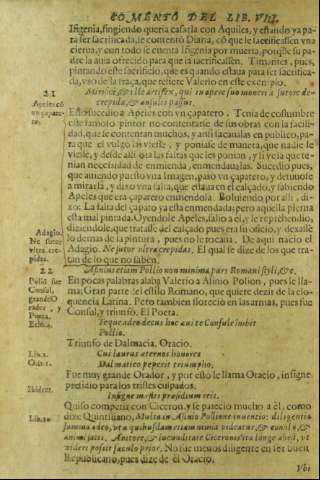 COMENTO DEL LIB. VIII.
Ifigenia, fingiendo queria casarla con Aquiles, y estando ya pa-
ra ser sacrificada, se contentò Diana, cõ que le sacrificassen vna
cierua, y con todo se cuenta Ifigenia por muerta, porque su pa-
dre la auia ofrecido para que la sacrificassen. Timantes, pues,
pintando este sacrificio, que es quando estaua para ser sacrifica-
da, vsò de la traça, que refiere Valerio en este exemplo.
21
Apeles cõ
vn çapate-
ro.
Mirificè & ille artifex, qui in opere suo moneri a sutore de-
crepida, & ansulis passus.
Esto sucediò a Apeles con vn çapatero. Tenia de costumbre
este famoso pintor no contentarse de sus obras con la facili-
dad, que se contentan muchos, y assi sacaualas en publico, pa-
ra que el vulgo las viesse, y poniase de manera, que nadie le
viesse, y desde alli oìa las faltas que les ponian, y si veìa que te-
nian necessidad de enmienda, enmendaualas. Sucediò pues,
que auiendo puesto vna Imagen, passò vn çapatero, y detuuose
a mirarla, y dixo vna falta, que estaua en el calçado, y sabiendo
Apeles que era çapatero enmiendala. Boluiendo por alli, di-
xo: La falta del çapato ya està enmendada; pero aquella pierna
està mal pintada. Oyendole Apeles, saliò a el, y le reprehendiò,
diziendole, que tratasse del calçado pues era su oficio, y dexasse
lo demas de la pintura, pues no le tocaua. De aqui naciò el
Adagio. Ne sutor vltra crepidas. El qual se dize de los que tra-
tan de lo que no saben.
Adagio.
Ne sutor
vltra cre-
pidas.
22
Polio fue
Consul,
grande O-
rador, y
Poeta.
Eclo.4.
Asinius etiam Pollio non minima pars Romani styli, &c.
En pocas palabras alaba Valerio a Asinio Polion, pues le lla-
ma: Gran parte del estilo Romano, que quiere dezir de la elo-
quencia Latina. Pero tambien floreciò en las armas, pues fue
Consul, y triunfò. El Poeta.
Teque adeo decus hoc æui te Consule inibit
Pollio.
Triunfo de Dalmacia. Oracio.
Lib.2.
Oda 1.
Cui laurus æternos honores
Dalmatico peperit triumpho.
Fue muy grande Orador, y por esso le llama Oracio, insigne
presidio para los tristes culpados.
Ibidem.
Insigne mæstis præsidium reis.
Quiso competir con Ciceron, y se pareciò mucho a èl, como
dize Quintiliano, Multa in Asinio Pollione inuentio; diligentia
summa adeo, vt a quibusdam etiam nimia videatur, & consil, &
animi satis. A nitore, & iucunditate Ciceronis ita longe abest, vt
videri possit sæculo prior. No fue menos diligente en ser buen
Republicano, pues dize de el Oracio.
Vbi